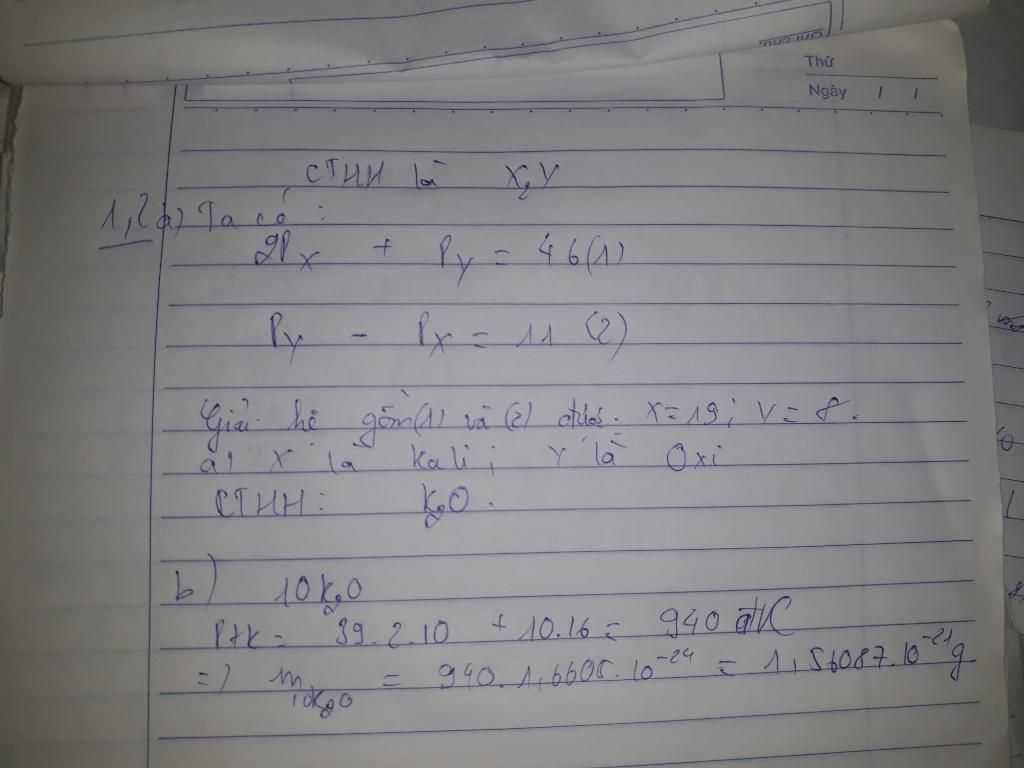 Ghi chú:
Thứ
Ngày / /
CTHH là X₂Y
1,2a) Ta có :
2Pₓ + Pʏ = 46(1)
Pʏ - Pₓ = 11 (2)
Giải hệ gồm(1) và (2) được: X=19; Y=8.
a) X là kali; Y là Oxi
CTHH: K₂O.
b) 10K₂O
PTK = 39.2.10 + 10.16 = 940 đvC
=) m 10K₂O = 940.1,6605.10⁻²⁴ = 1,56087.10⁻²¹g